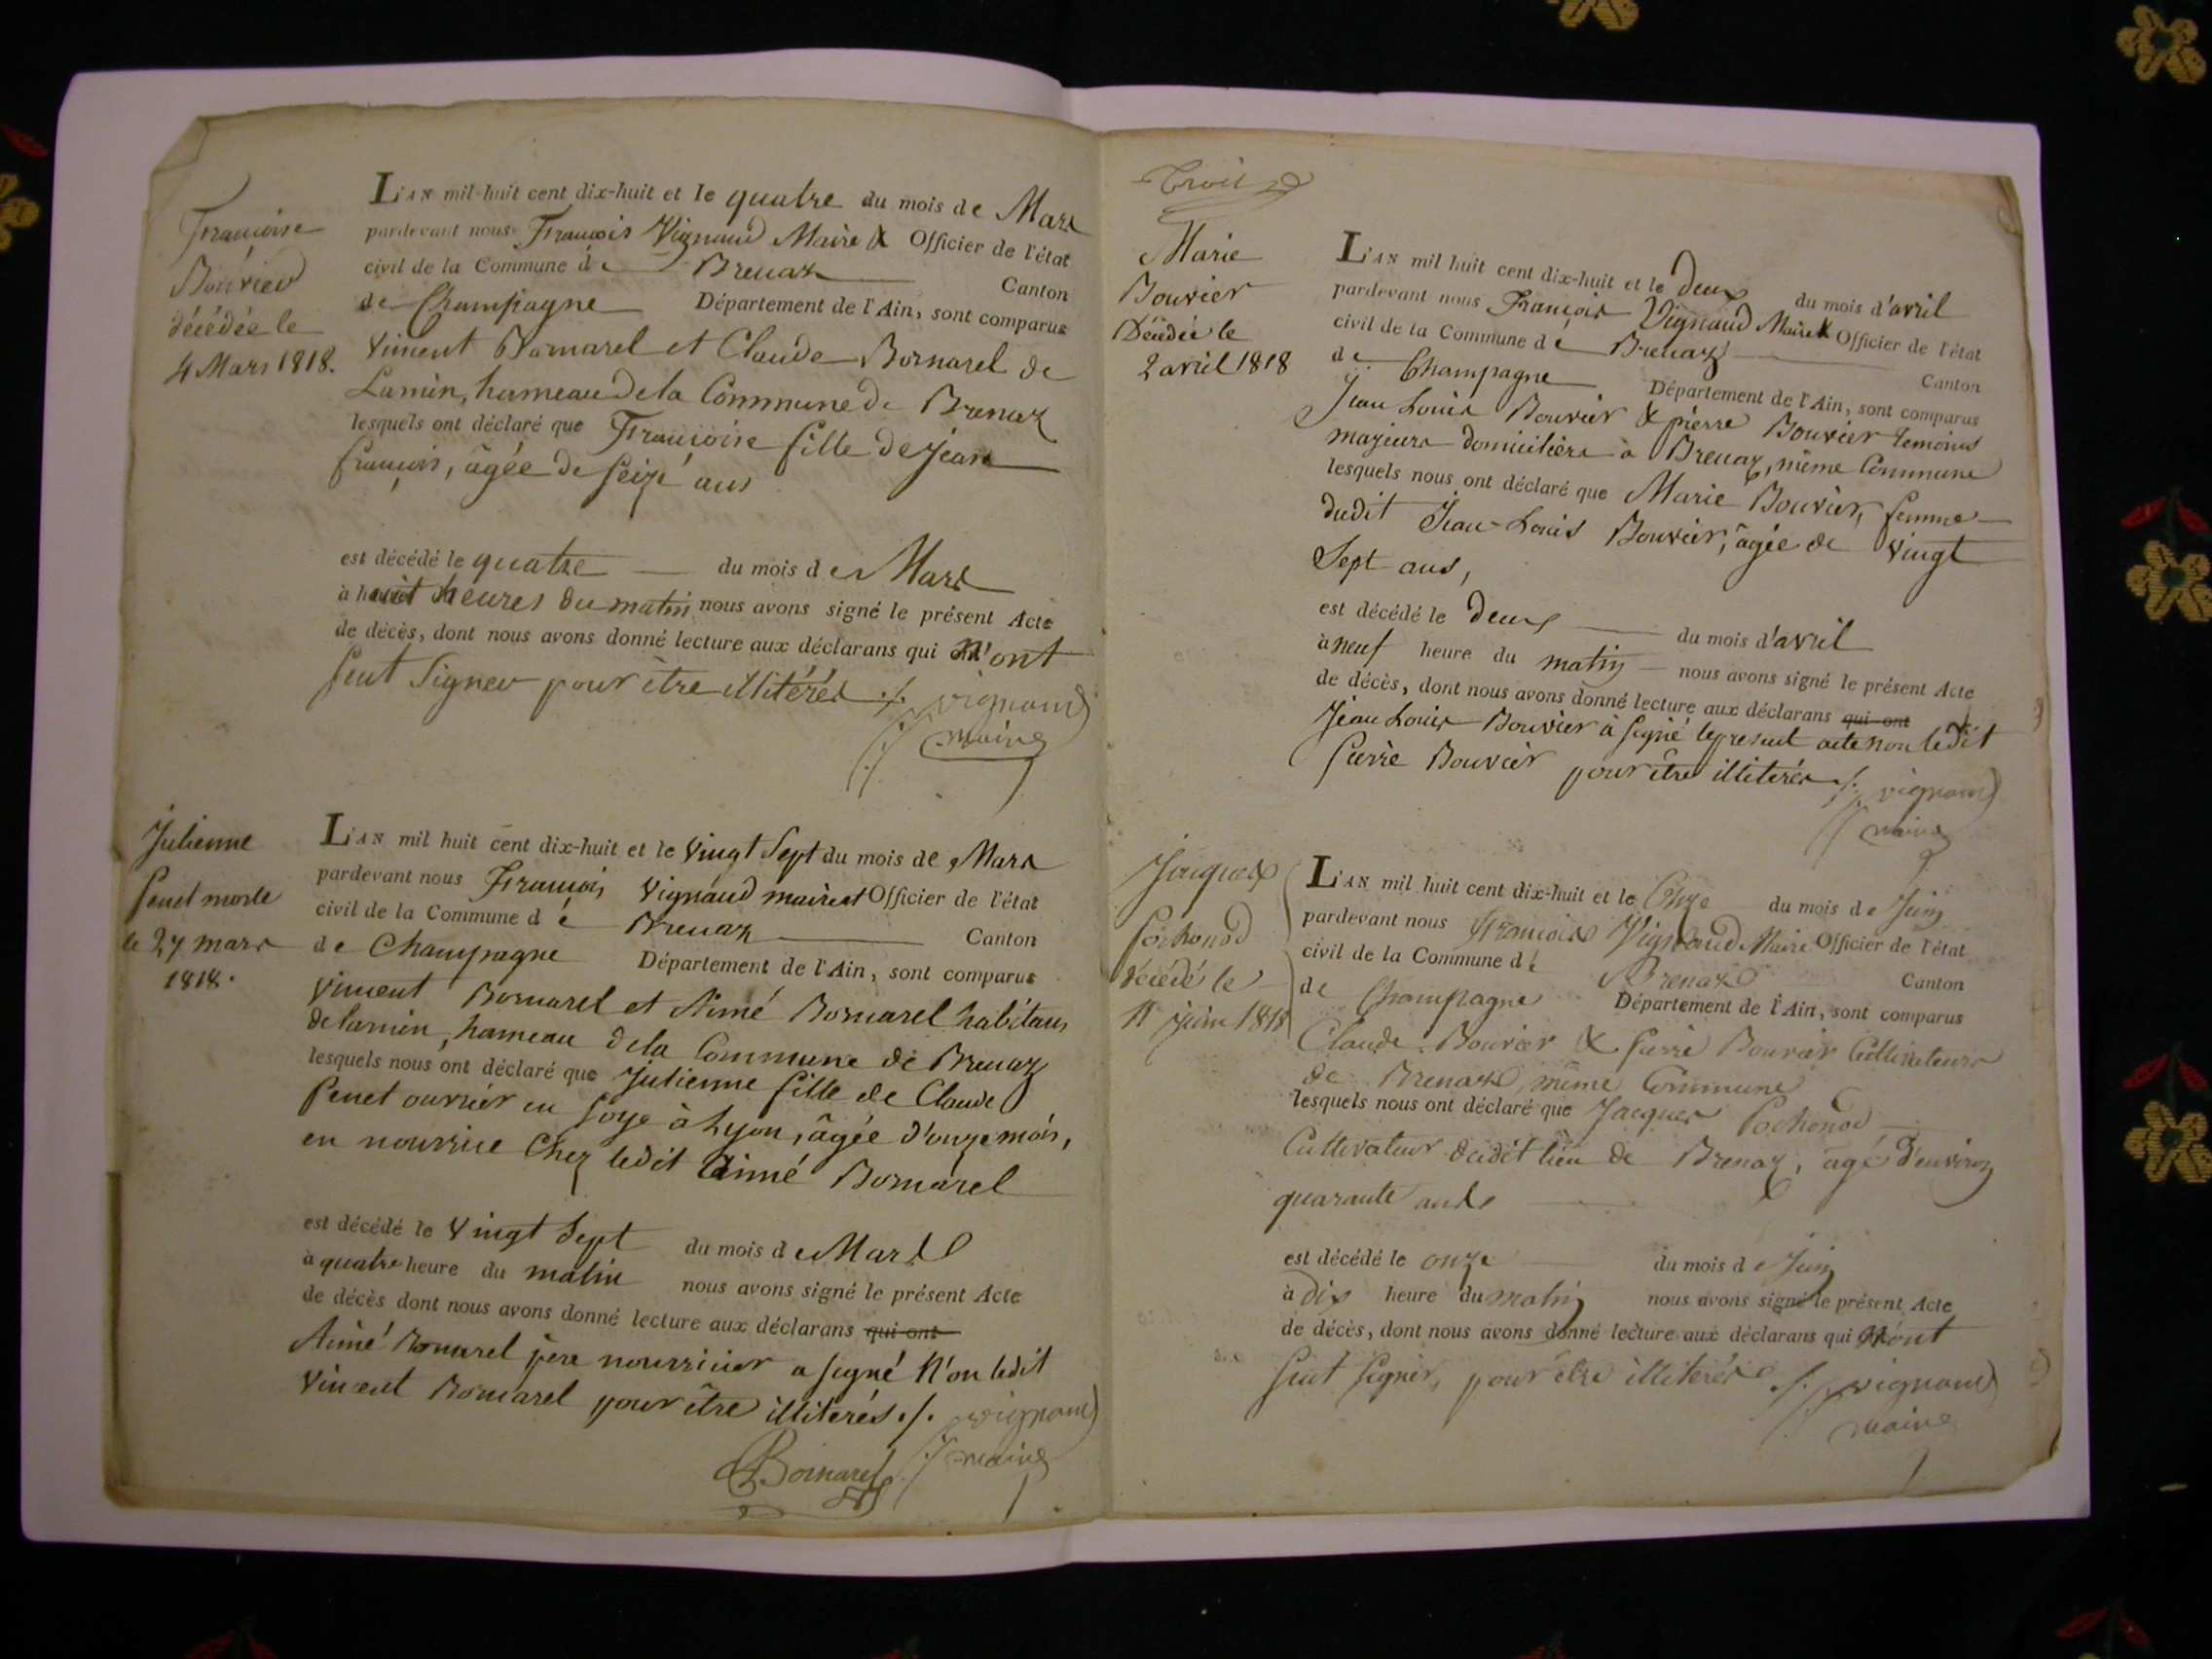 Françoise
Bouvier
décédée le
4 Mars 1818.
L'AN mil-huit cent dix-huit et le quatre du mois de Mars
pardevant nous François Vignaud Maire & Officier de l'état
civil de la Commune de Brenaz Canton
de Champagne Département de l'Ain, sont comparus
Vincent Bornarel et Claude Bornarel de
Lamin, hameau de la Commune de Brenaz
lesquels ont déclaré que Françoise fille de Jean
françois, âgée de seize ans
est décédé le quatre du mois de Mars
à huit heures du matin nous avons signé le présent Acte
de décès, dont nous avons donné lecture aux déclarans qui n'ont
seut Signer pour être illitérés ./. vignaud
maire
Julienne
Penet morte
le 27 mars
1818.
L'AN mil huit cent dix-huit et le Vingt Sept du mois de Mars
pardevant nous François Vignaud maire et Officier de l'état
civil de la Commune dé Brenaz Canton
de Champagne Département de l'Ain, sont comparus
Vincent Bornarel et Aimé Bornarel habitans
de lamin, hameau de la Commune de Brenaz
lesquels nous ont déclaré que Julienne fille de Claude
Penet ouvrier en soye à Lyon, âgée d'onze mois,
en nourrice Chez ledit Aimé Bornarel
est décédé le Vingt Sept du mois de Mars
à quatre heure du matin nous avons signé le présent Acte
de décès dont nous avons donné lecture aux déclarans qui ont
Aimé Bornarel père nourricier a signé Non ledit
Vincent Bornarel pour être illiterés ./. vignaud
maire
Bornarel
Trois
Marie
Bouvier
Décédée le
2 avril 1818
L'AN mil huit cent dix-huit et le Deux du mois d'avril
pardevant nous François Vignaud Maire & Officier de l'état
civil de la Commune dé Brenaz Canton
de Champagne Département de l'Ain, sont comparus
Jean Louis Bouvier & pierre Bouvier temoins
majeurs domiciliers à Brenaz, même Commune
lesquels nous ont déclaré que Marie Bouvier, femme
dudit Jean-Louis Bouvier, âgée de Vingt
Sept ans,
est décédé le Deux du mois d'avril
à neuf heure du matin nous avons signé le présent Acte
de décès, dont nous avons donné lecture aux déclarans qui ont
Jean Louis Bouvier à signé le present acte non ledit
Pierre Bouvier pour être illiterés ./. vignaud
maire
Jacques
Pochonod
décédé le
11 juin 1818
L'AN mil huit cent dix-huit et le Onze du mois de Juin
pardevant nous François Vignaud Maire Officier de l'état
civil de la Commune dé Brenaz Canton
de Champagne Département de l'Ain, sont comparus
Claude Bouvier & Pierre Bouvier Cultivateurs
de Brenaz, même Commune
lesquels nous ont déclaré que Jacques Pochonod
Cultivateur dudit lieu de Brenaz, âgé d'environ
quarante ans
est décédé le onze du mois de Juin
à Dix heure du matin nous avons signé le présent Acte
de décès, dont nous avons donné lecture aux déclarans qui N'ont
seut signer, pour être illiterés ./. vignaud
maire